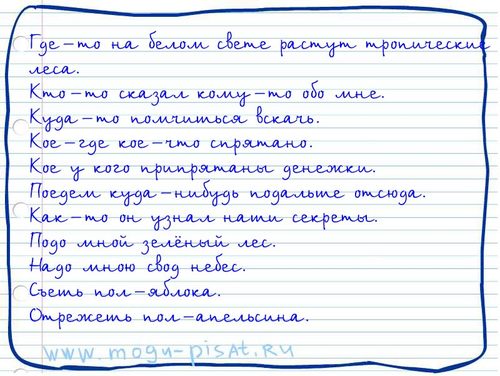 Где-то на белом свете растут тропические
леса.
Кто-то сказал кому-то обо мне.
Куда-то помчиться вскачь.
Кое-где кое-что спрятано.
Кое у кого припрятаны денежки.
Поедем куда-нибудь подальше отсюда.
Как-то он узнал наши секреты.
Подо мной зелёный лес.
Надо мною свод небес.
Съеть пол-яблока.
Отрежеть пол-апельсина.
www.mogu-pisat.ru